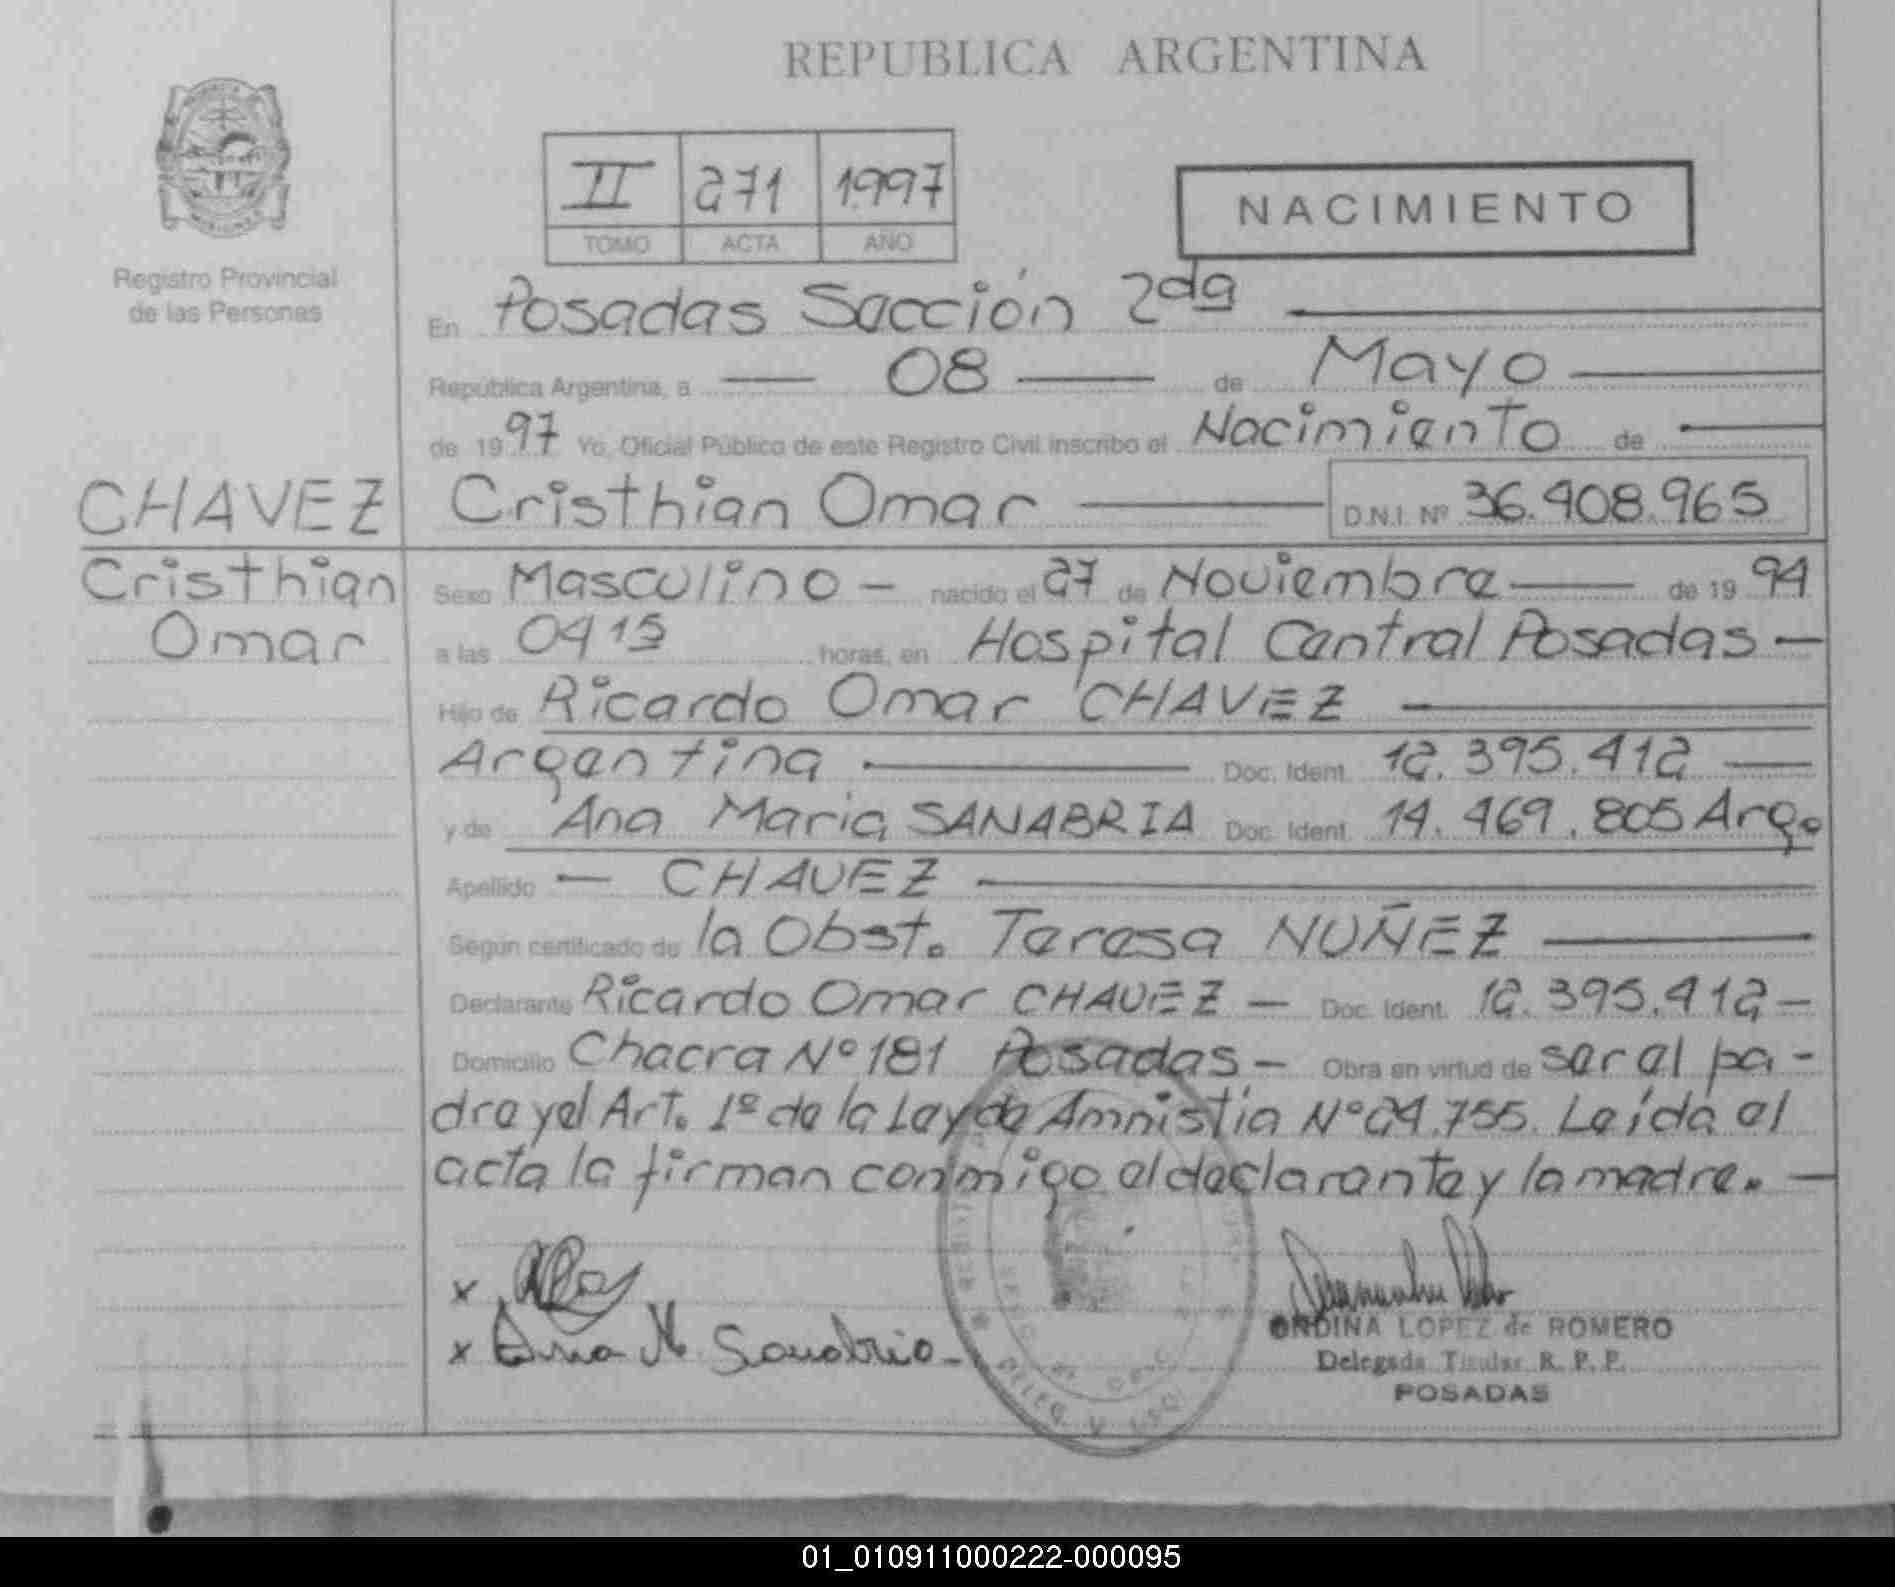 REPUBLICA ARGENTINA
II 271 1997
TOMO ACTA AÑO
NACIMIENTO
Registro Provincial
de las Personas
En Posadas Sección 2da
República Argentina, a 08 de Mayo
de 1997 Yo, Oficial Público de este Registro Civil inscribo el Nacimiento de
CHAVEZ
Cristhian
Omar
Cristhian Omar D.N.I. Nº 36.408.965
Sexo Masculino - nacido el 27 de Noviembre de 1994
a las 0415 horas, en Hospital Central Posadas -
Hijo de Ricardo Omar CHAVEZ
Argentina Doc. Ident. 12.395.412
y de Ana Maria SANABRIA Doc. Ident. 14.469.805 Arg.
Apellido - CHAVEZ
Según certificado de la Obst. Teresa NUÑEZ
Declarante Ricardo Omar CHAVEZ - Doc. Ident. 12.395.412 -
Domicilio Chacra Nº 181 Posadas - Obra en virtud de ser el pa-
dre y el Art. 1º de la Ley de Amnistía Nº 24.755. Leída el
acta la firman conmigo el declarante y la madre. -
x
x Ana M Sanabria
ONDINA LOPEZ de ROMERO
Delegada Titular R. P. P.
POSADAS
01_010911000222-000095